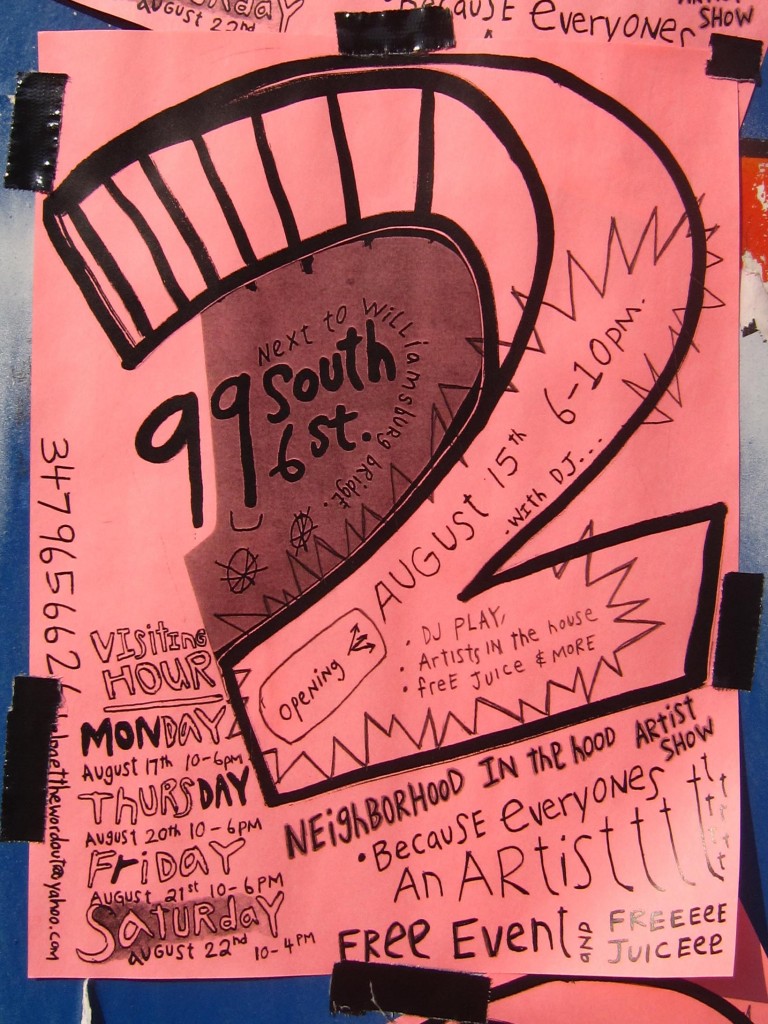 AUGUST 22nd
Because everyones
ARTIST
SHOW
Next to Williamsburg bridge.
99 South
6 st.
6-10pm.
AUGUST 15th
With DJ...
Opening
• DJ PLAY,
• Artists IN the house
• freE JUICE & MORE
Visiting
HOUR
MONDAY
August 17th 10-6pm
THURSDAY
AUGUST 20th 10-6PM
FriDAY
AUGUST 21st 10-6PM
SATURdaY
AUGUST 22nd 10-4PM
NEighBORHOOD IN the hOOD ARTIST
SHOW
• Because everyones
An ARTisttttttttt
FRee Event AND FREEEEE
JUICEEE